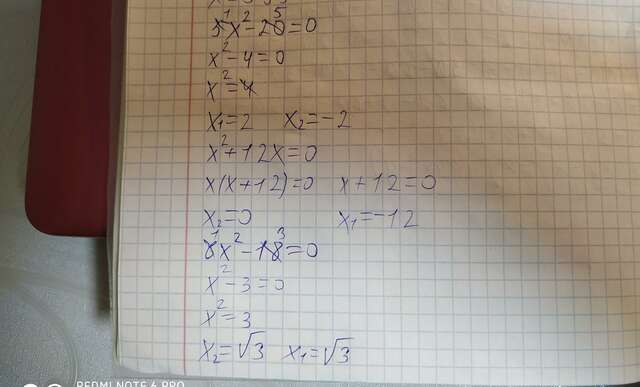 5x²-20=0
x²-4=0
x²=4
x₁=2 x₂=-2
x²+12x=0
x(x+12)=0 x+12=0
x₂=0 x₁=-12
6x²-18=0
x²-3=0
x²=3
x₂=√3 x₁=√3
REDMI NOTE 6 PRO